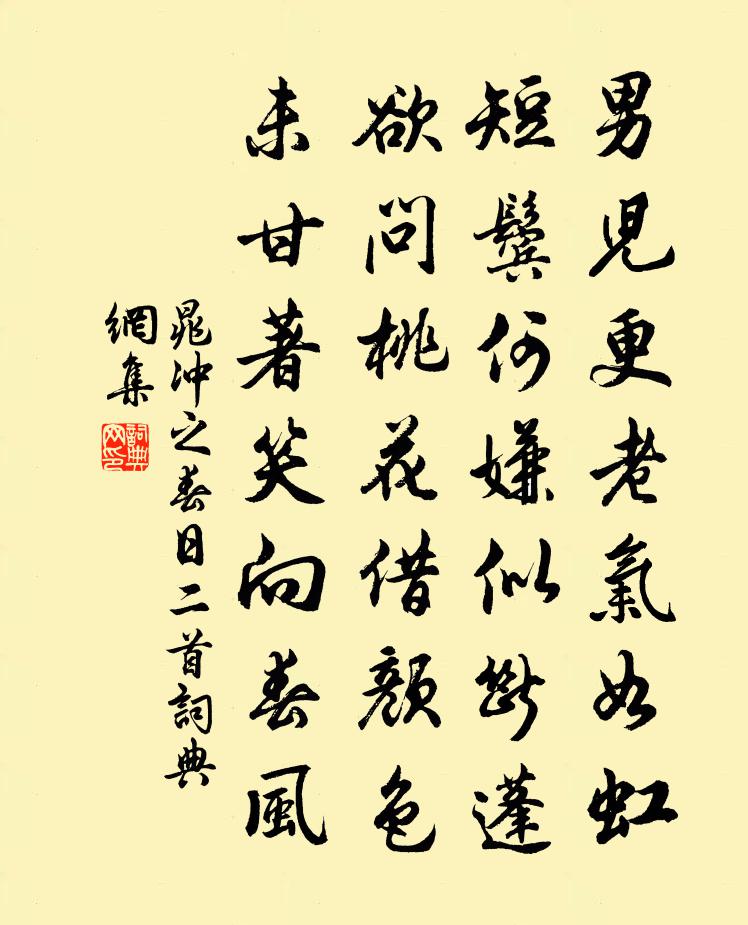 男兒更老氣如虹
短鬢何嫌似斷蓬
欲問桃花借顏色
未甘著笑向春風
晁沖之春日二首詞典
網集
詞典
网印